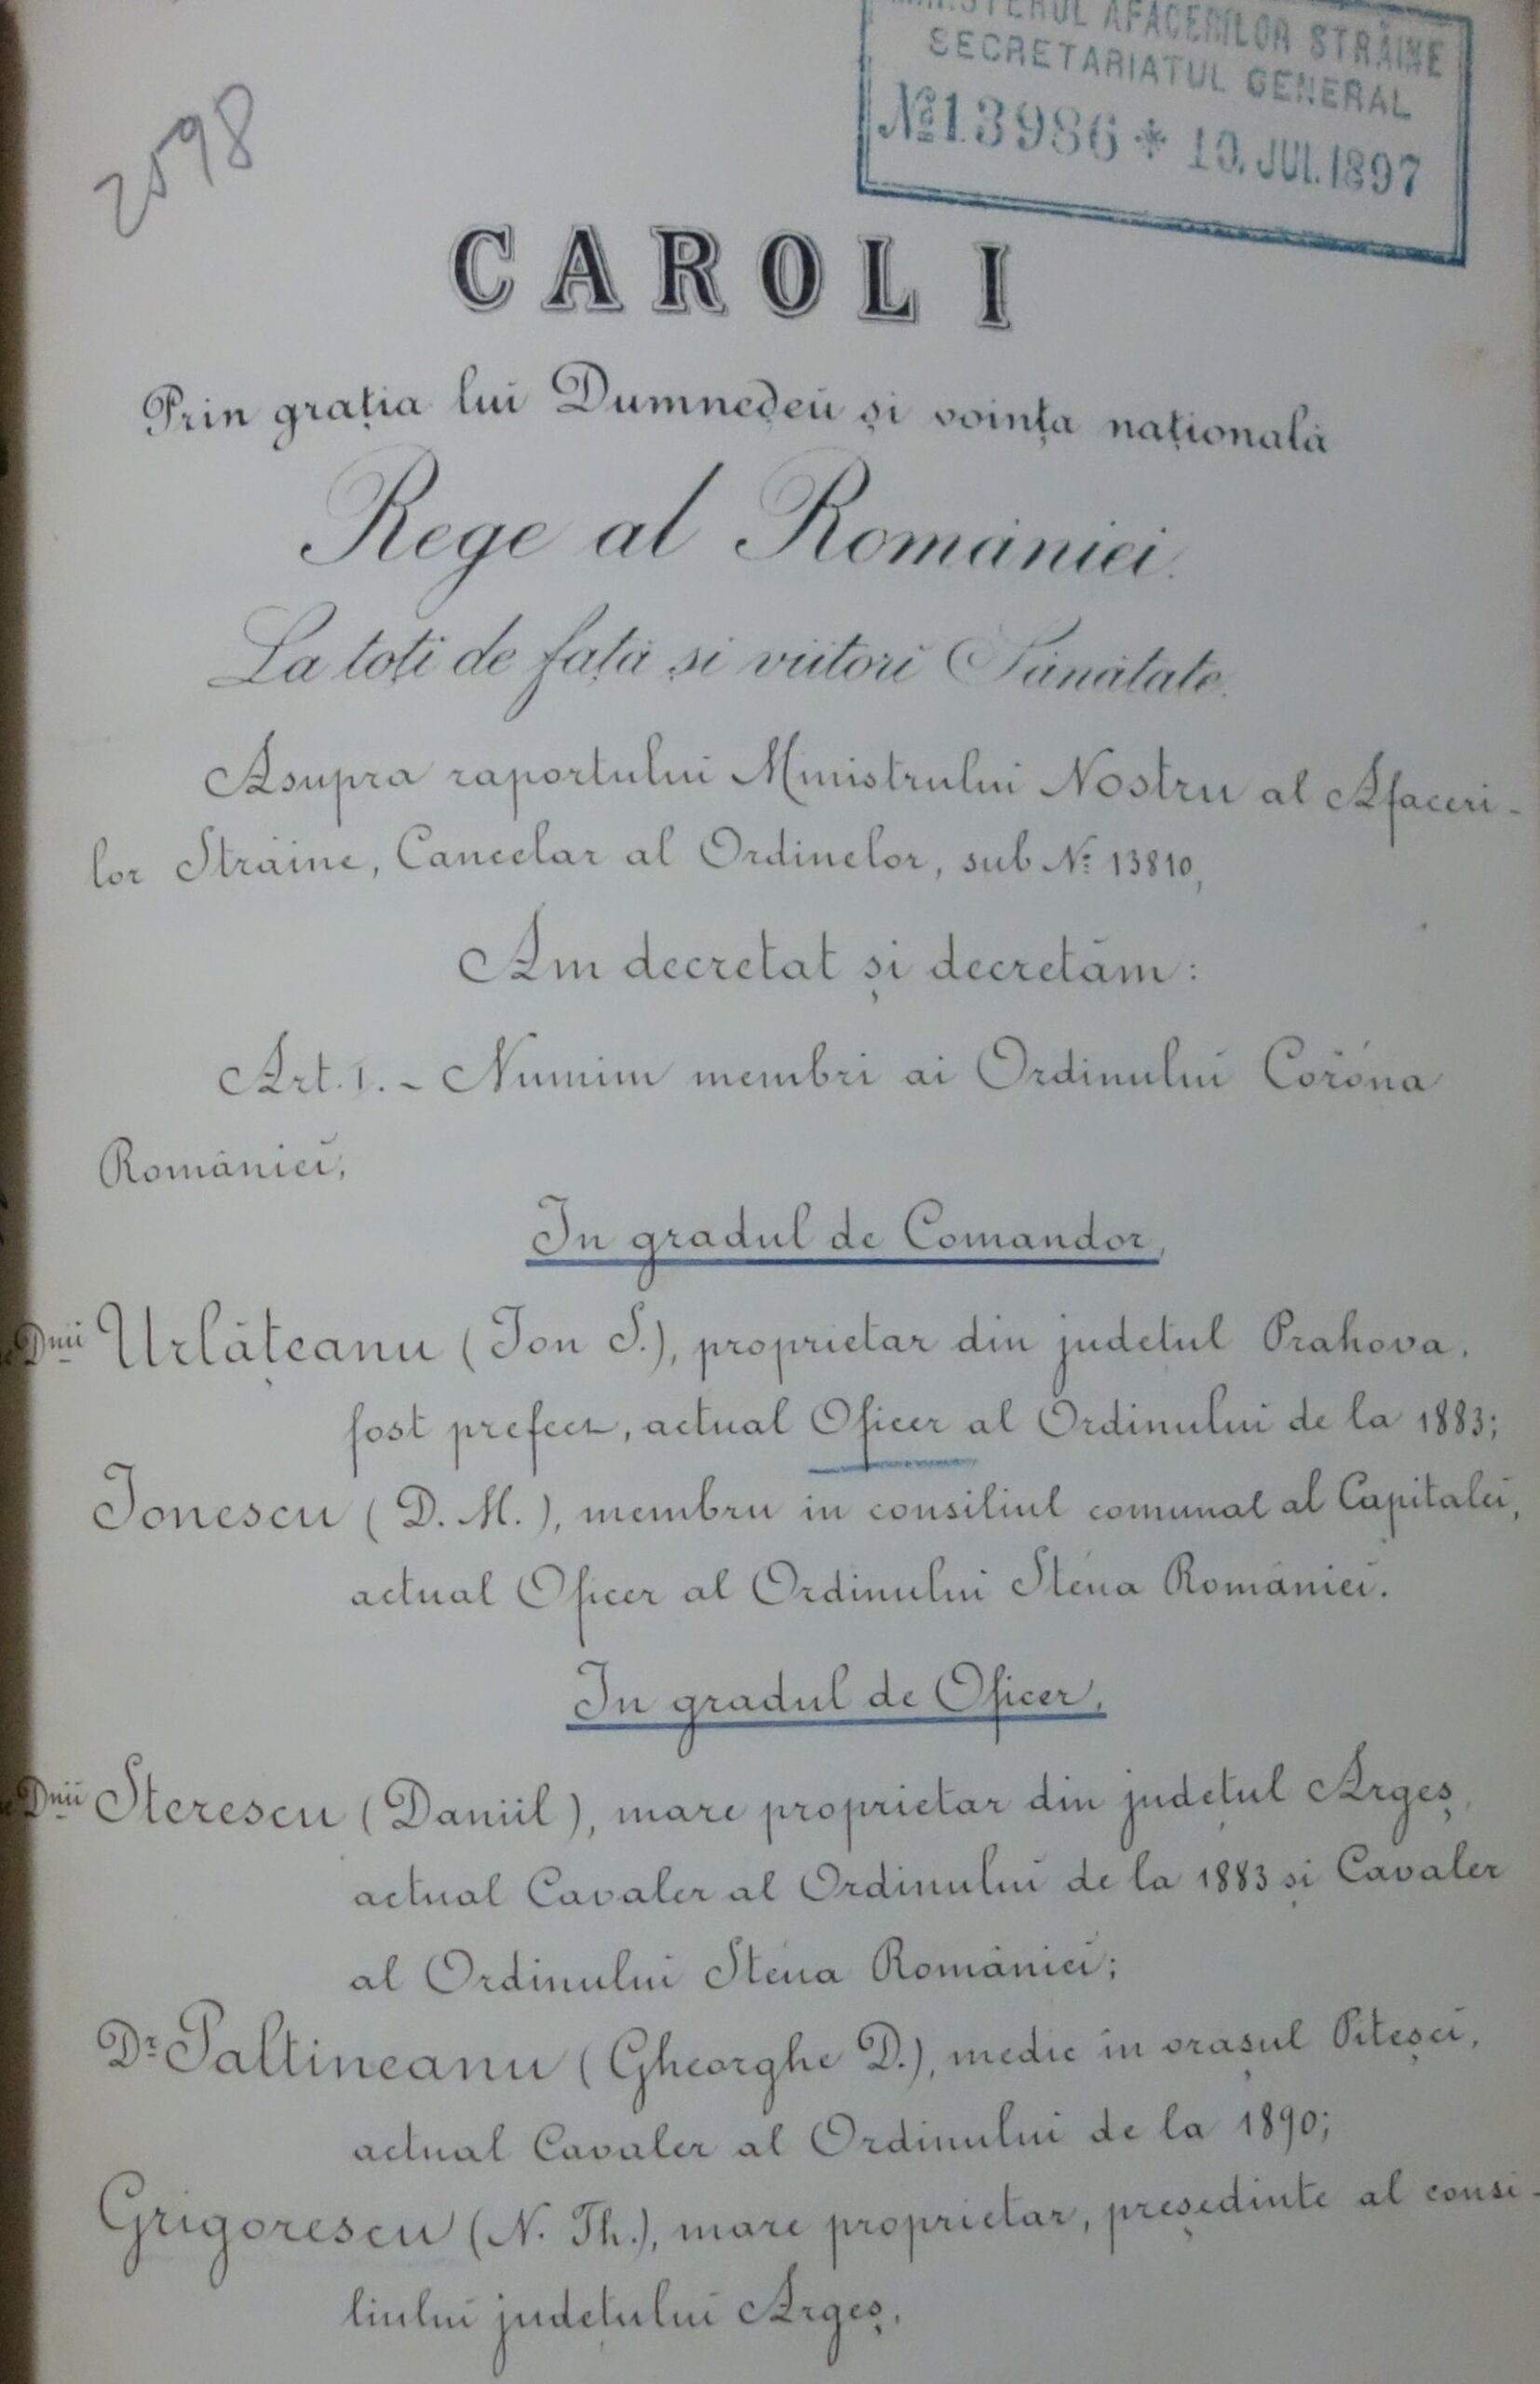 MINISTERUL AFACERILOR STRĂINE
SECRETARIATUL GENERAL
№ 13986 * 10. JUL. 1897
2598
CAROL I
Prin grația lui Dumnedeŭ și voința națională
Rege al României.
La toți de față și viitori Sănătate.
Asupra raportuluĭ Ministruluĭ Nostru al Afaceri-
lor Străine, Cancelar al Ordinelor, sub № 13810,
Am decretat și decretăm:
Art. I. - Numim membri ai Ordinuluĭ Coróna
Românieĭ,
In gradul de Comandor,
Dnii Urlățeanu (Ion S.), proprietar din judetul Prahova,
fost prefect, actual Oficer al Ordinuluĭ de la 1883;
Ionescu (D. M.), membru in consiliul comunal al Capitaleĭ,
actual Oficer al Ordinuluĭ Stéua Românieĭ.
In gradul de Oficer,
Dnii Sterescu (Daniil), mare proprietar din județul Argeș,
actual Cavaler al Ordinuluĭ de la 1883 și Cavaler
al Ordinuluĭ Stéua Românieĭ;
Dr Paltineanu (Gheorghe D.), medic in orașul Piteșcĭ,
actual Cavaler al Ordinuluĭ de la 1890;
Grigorescu (N. Th.), mare proprietar, președinte al consi-
liuluĭ județuluĭ Argeș,